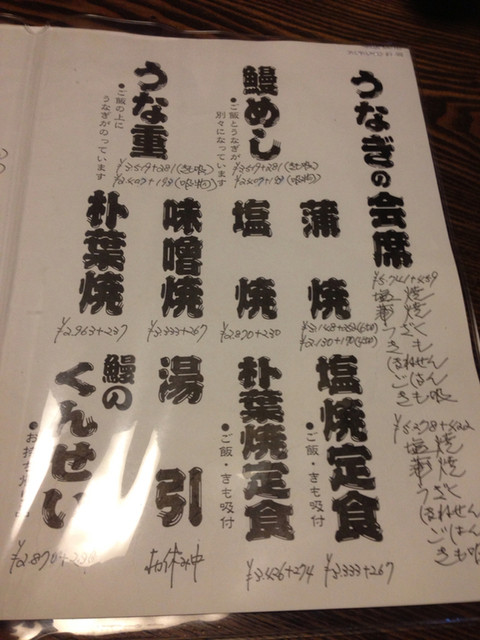 うなぎの会席
¥5.741+459
塩焼
蒲焼
うざく
うまき
きも
ほねせん
ごはん
きも吸
¥5.278+422
塩焼
蒲焼
うざく
ほねせん
ごはん
きも吸
鰻めし
●ご飯とうなぎが
別々になっています
¥3.519+281(きも吸)
¥2.407+193(吸い物)
うな重
●ご飯の上に
うなぎがのっています
¥3.519+281(きも吸)
¥2.407+193(吸い物)
蒲焼
塩焼
¥2.870+230
味噌焼
¥3.333+267
朴葉焼
¥2.963+237
塩焼定食
●ご飯・きも吸付
¥3.333+267
朴葉焼定食
●ご飯・きも吸付
¥3.426+274
湯引
お休み中
鰻の
くんせい
¥2.870+230